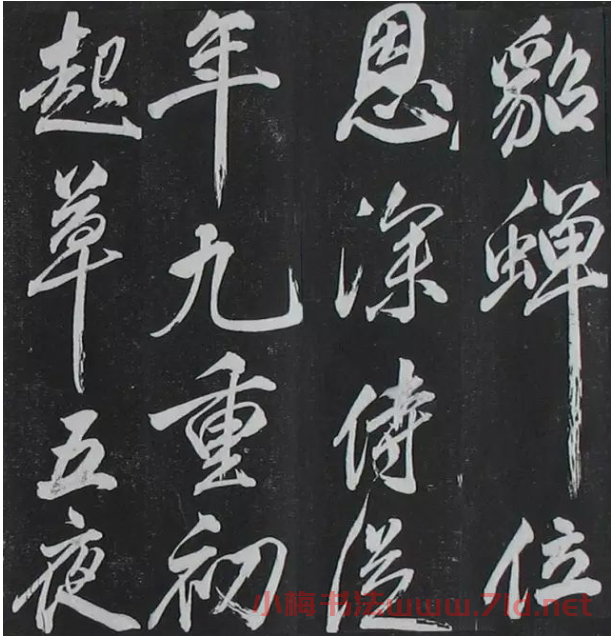 貂蝉位
恩深侍从
年九重初
起草五夜
小梅书法www.7ld.net